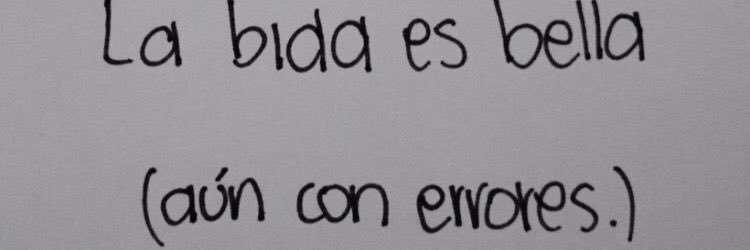 La bida es bella
(aún con errores.)